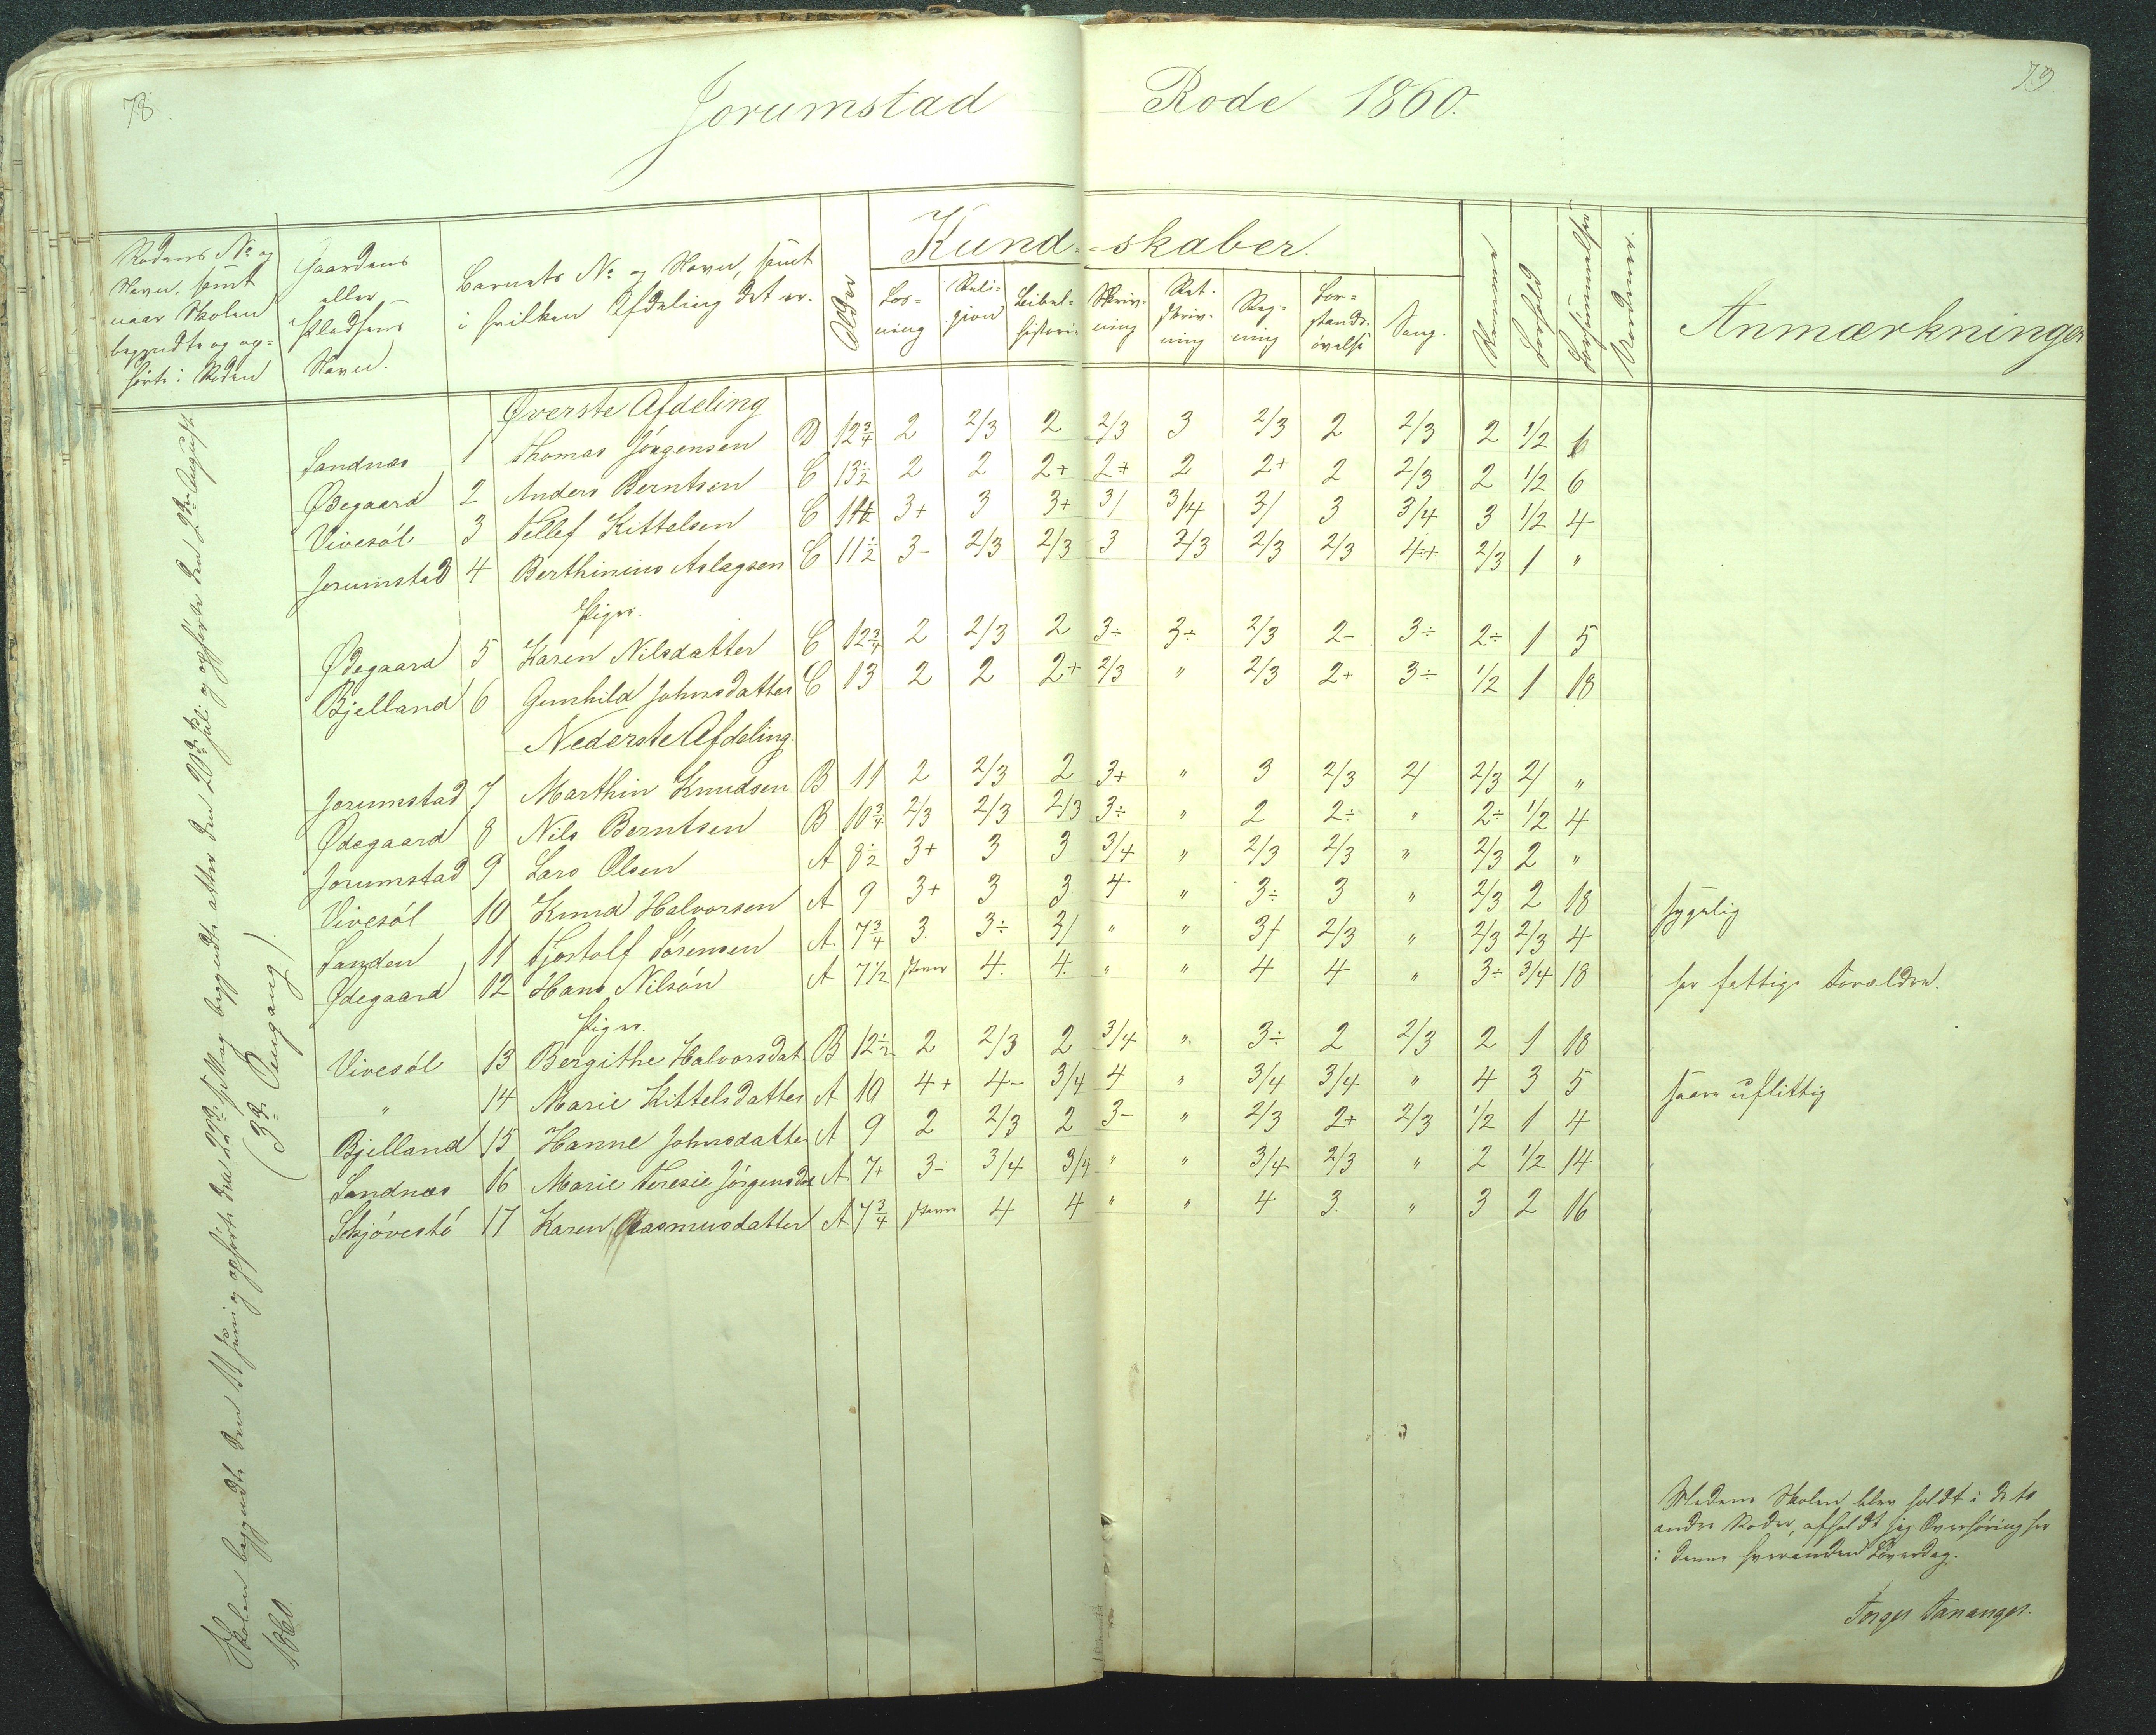 78.
79
Jorumstad Rode 1860.
Rodens No og Navn, samt naar Skolen begyndte og ophørte i Roden
Gaardens eller Pladsens Navn.
Barnets No og Navn, samt i hvilken Afdeling det er.
Alder
Kund-skaber.
Læsning
Religion
Bibelhistorie
Skrivning
Retskrivning
Regning
Forstandsøvelse
Sang.
Nemme
Forhold
Forsømmelse
Anmærkninger
Øverste Afdeling
Sandnæs 1 Thomas Jörgensen D 12 3/4 2 2/3 2 2/3 3 2/3 2 2/3 2 1/2 6
Ødegaard 2 Anders Berntsen C 13 1/2 2 2 2+ 2+ 2 2+ 2 2/3 2 1/2 6
Vivesöl 3 Tellef Kittelsen C 3+ 3 3+ 3/ 3/4 3/ 3 3/4 3 1/2 4
Jorumstad 4 Berthinius Aslagsen C 11 1/2 3- 2/3 2/3 3 2/3 2/3 2/3 4+ 2/3 1 "
Piger.
Ødegaard 5 Karen Nilsdatter C 12 3/4 2 2/3 2 3÷ 3÷ 2/3 2- 3÷ 2÷ 1 5
Bjelland 6 Gunhild Johnsdatter C 13 2 2 2+ 2/3 " 2/3 2+ 3÷ 1/2 1 18
Nederste Afdeling.
Jorumstad 7 Marthin Knudsen B 11 2 2/3 2 3+ " 3 2/3 2/ 2/3 2/ "
Ødegaard 8 Nils Berntsen B 10 3/4 2/3 2/3 2/3 3÷ " 2 2÷ " 2÷ 1/2 4
Jorumstad 9 Lars Olsen A 8 1/2 3+ 3 3 3/4 " 2/3 2/3 " 2/3 2 "
Vivesöl 10 Knud Halvorsen A 9 3+ 3 3 4 " 3÷ 3 " 2/3 2 18 sygelig
Sanden 11 Gjostolf Sörensen A 7 3/4 3. 3÷ 3/ " " 3/ 2/3 " 2/3 2/3 4
Ødegaard 12 Hans Nilsön A 7 1/2 staver 4. 4. " " 4 4 " 3÷ 3/4 18 har fattige Forældre.
Piger.
Vivesöl 13 Bergithe Halvorsdat B 12 1/2 2 2/3 2 3/4 " 3÷ 2 2/3 2 1 18
" 14 Marie Kittelsdatter A 10 4+ 4- 3/4 4 " 3/4 3/4 " 4 3 5 saare uflittig
Bjelland 15 Hanne Johnsdatter A 9 2 2/3 2 3- " 2/3 2+ 2/3 1/2 1 4
Sandnæs 16 Marie Teresie Jörgensdat A 7+ 3- 3/4 3/4 " " 3/4 2/3 " 2 1/2 14
Skjövestö 17 Karen Rasmusdatter A 7 3/4 staver 4 4 " " 4 3. " 3 2 16
Skolen begyndte den 11 Juni og ophørte den 22de begyndte atter den 20de Juli og ophørte den 2den August
1860.
(3de Omgang)
Medens Skolen blev holdt i de to
andre Roder, afholdt jeg Overhøring her
i denne hveranden Løverdag.
Torger Tananger.